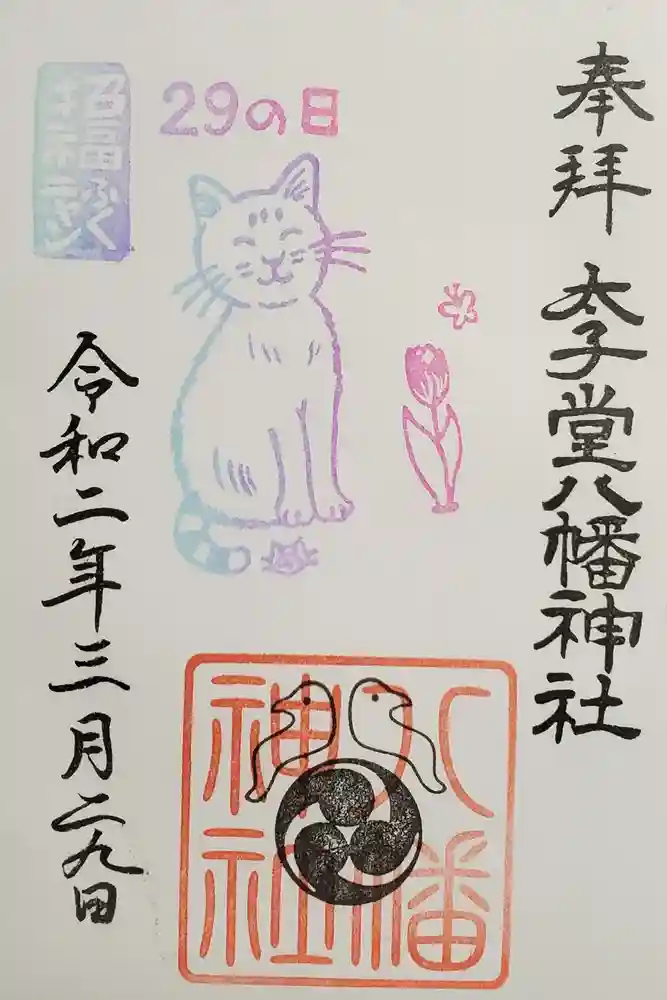 奉拝
太子堂八幡神社
29の日
招福ふく
招き ニャン
八幡神社
令和二年三月二九日